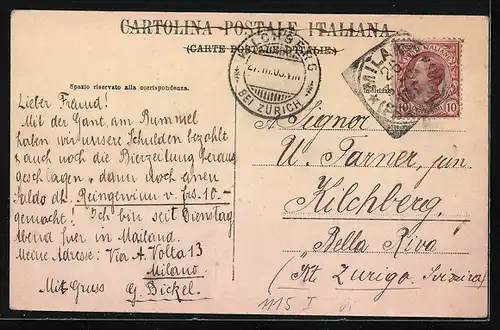 CARTOLINA POSTALE ITALIANA
(CARTE POSTALE D'ITALIE)
KILCHBERG
BEI ZÜRICH
MILANO
10
Spazio riservato alla corrispondenza.
Lieber Freund!
Mit der Gant, am Bummel
haben wir unsere Schulden bezahlt
& auch noch die Bierzeitung heraus
geschlagen, dann noch einen
Saldo als Reingewinn v. frs. 10.-
gemacht! Ich bin seit Dienstag
Abend hier in Mailand.
Meine Adresse: Via A. Volta 13
Milano
Mit Gruss G. Bickel.
A Signor
U. Parner, jun.
Kilchberg.
"Bella Riva"
(Kt. Zurigo. Svizzera)
1115 I